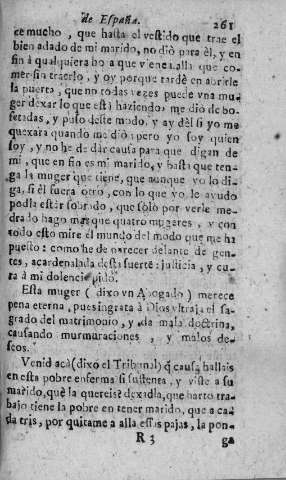 de España. 261
ce mucho, que hasta el vestido que trae el
bien adado de mi marido, no diò para èl, y en
fin à qualquiera ho a que viene halla que co-
mer sin traerlo, y oy porque tardè en abrirle
la puerta, que no todas vezes puede vna mu-
ger dexar lo que està haziendo, me diò de bo-
fetadas, y puso deste modo: y ay dèl si yo me
quexara quando me diò; pero yo soy quien
soy, y no he de dar causa para que digan de
mi, que en fin es mi marido, y basta que ten-
ga la muger que tiene, que aunque yo lo di-
ga, si èl fuera otro, con lo que yo le ayudo
podia estàr sobrado, que solo por verle me-
drado hago mas que quatro mugeres, y con
todo esto mire el mundo del modo que me ha
puesto: como he de parecer delante de gen-
tes, acardenalada desta suerte: justicia, y cu-
ra à mi dolencia pido.
Esta muger (dixo vn Abogado) merece
pena eterna, pues ingrata à Dios vltraja el sa-
grado del matrimonio, y da mala doctrina,
causando murmuraciones, y malos de-
seos.
Venid acà (dixo el Tribunal) q̃ causa hallais
en esta pobre enferma si sustenta, y viste a su
marido, què la quereis? dexadla, que harto tra-
bajo tiene la pobre en tener marido, que a ca-
da tris, por quitame a allà essas pajas, la pon-
R 3 ga